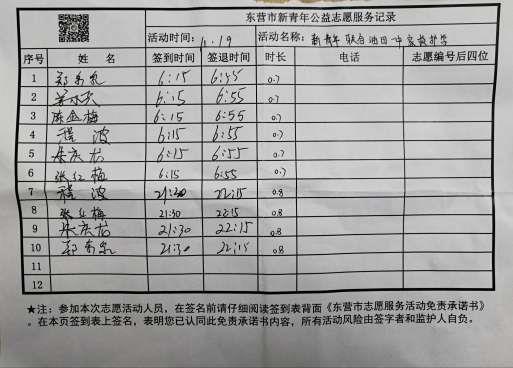 东营市新青年公益志愿服务记录
活动时间: 11.19 活动名称: 新青年联合油田一中家校护学
序号 姓 名 签到时间 签退时间 时长 电话 志愿编号后四位
1 郑秀泉 6:15 6:55 0.7
2 6:15 6:55 0.7
3 陈金梅 6:15 6:55 0.7
4 程波 6:15 6:55 0.7
5 朱庆吉 6:15 6:55 0.7
6 张红梅 6:15 6:55 0.7
7 程波 21:30 22:15 0.8
8 张红梅 21:30 22:15 0.8
9 朱庆吉 21:30 22:15 0.8
10 郑秀泉 21:30 22:15 0.8
11
12
★注: 参加本次志愿活动人员,在签名前请仔细阅读签到表背面《东营市志愿服务活动免责承诺书》
。在本页签到表上签名,表明您已认同此免责承诺书内容,所有活动风险由签字者和监护人自负。